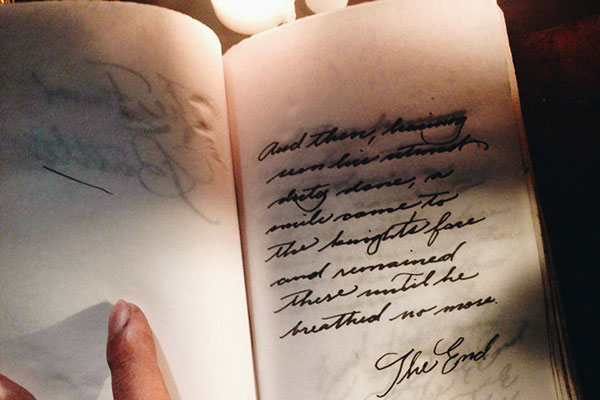 And then, having
seen his utmost
duty done, a
smile came to
the knight's face
and remained
there until he
breathed no more.
The End